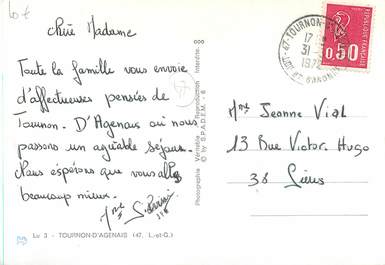 Chère Madame
Toute la famille vous envoie
d'affectueuses pensées de
Tournon. D'Agenais où nous
passons un agréable séjour.
Nous espérons que vous allez
beaucoup mieux.
Mme
Lv 3 - TOURNON-D'AGENAIS (47, L.-et-G.)
Photographie Véritable - Reproduction Interdite.
© by SPADEM - 6
47-TOURNON-
17
31
LOT ET GARONNE
REPUBLIQUE FRANCAISE
0,50
POSTES
Mme Jeanne Vial
13 Rue Victor Hugo
38